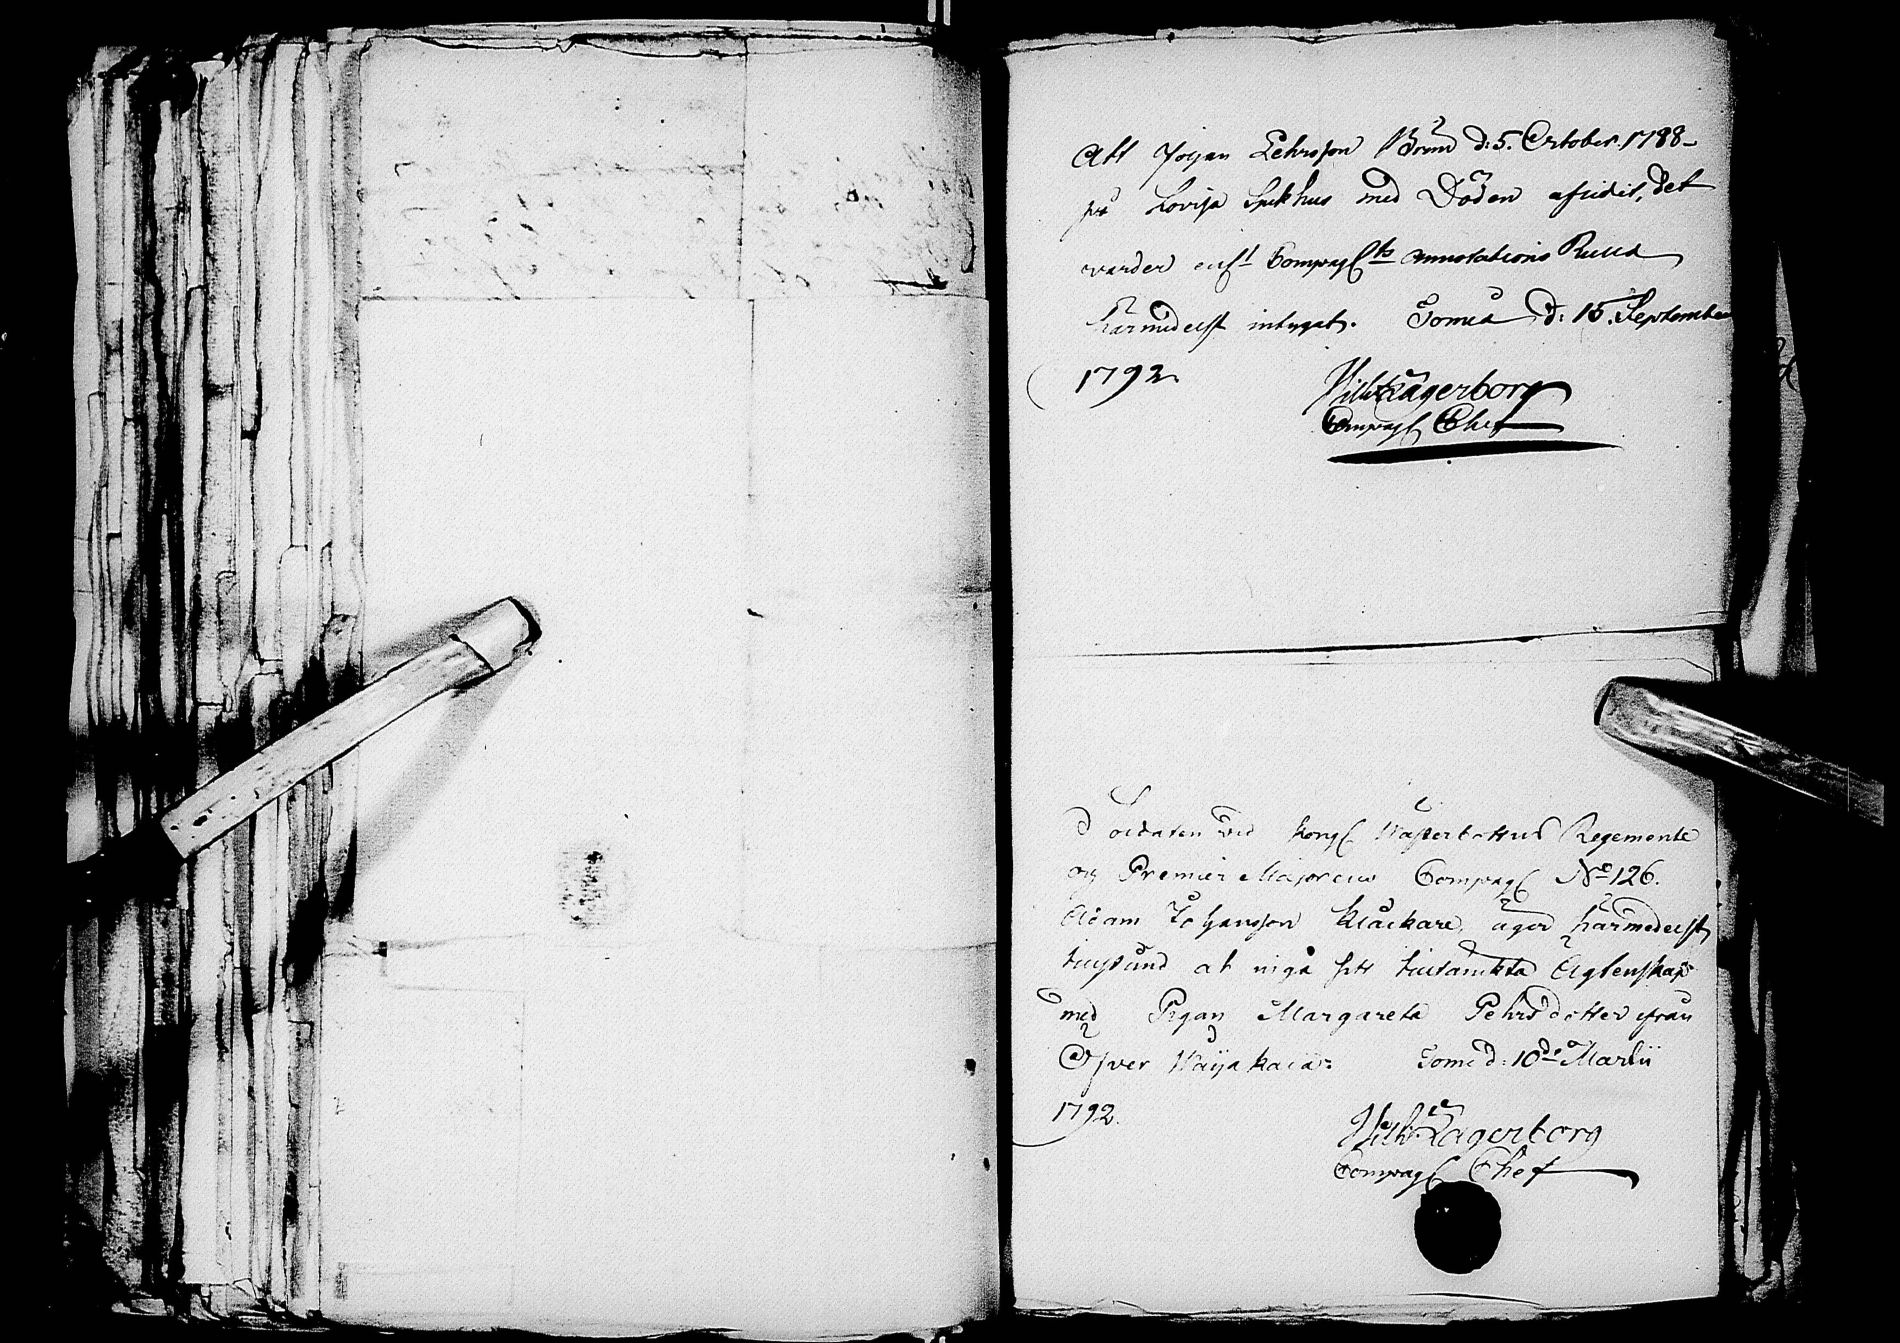 Att Johan Pehrsson Brun d: 5. October. 1788_
på Lovisa Siukhus med Döden afledit, det
varder enl:t Compag:ts annotations Rulla
härmedelst intygat. Torneå d: 15. September
1792.
Wilh: Lagerborg
Compag Chef
Soldaten vid Kongl Wästerbottns Regemente
og Premier Majorens Compag No 126.
Adam Johansson Kläckare, äger härmedelst
tillstånd at ingå sitt tilltänckta Ägtenskap
med Pigan Margareta Pehrsdotter ifrån
Öfver Wojakala: Torne d: 10de Martii
1792.
Wilh: Lagerborg
Compag Chef